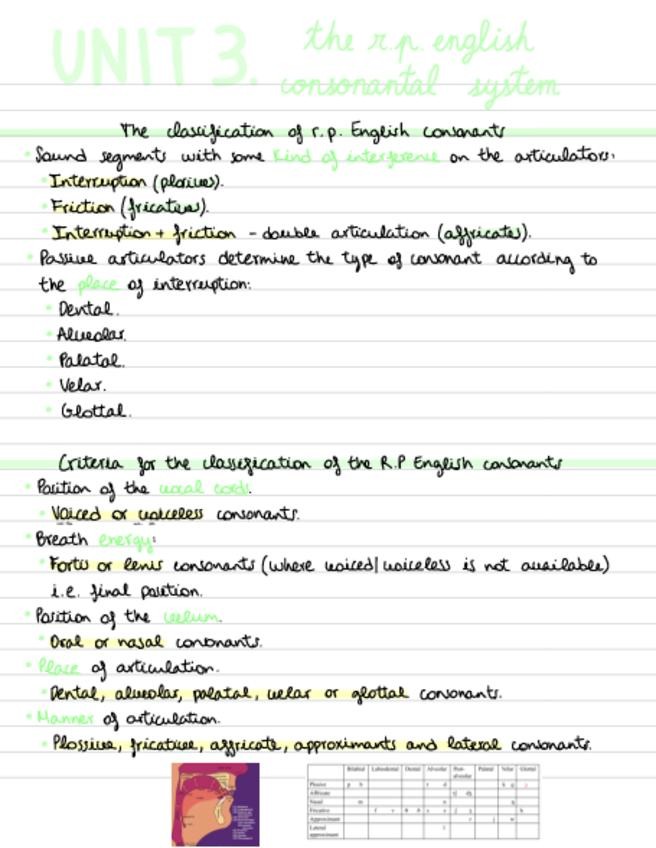 UNIT 3. the r.p. english
consonantal system
The classification of r.p. English consonants
Sound segments with some kind of interference on the articulators:
Interruption (plosives).
Friction (fricatives).
Interruption + friction - double articulation (affricates).
Passive articulators determine the type of consonant according to
the place of interruption:
Dental.
Alveolar.
Palatal.
Velar.
Glottal.
Criteria for the classification of the R.P English consonants
Position of the vocal cords.
Voiced or voiceless consonants.
Breath energy:
Fortis or lenis consonants (where voiced|voiceless is not available)
i.e. final position.
Position of the velum.
Oral or nasal consonants.
Place of articulation.
Dental, alveolar, palatal, velar or glottal consonants.
Manner of articulation.
Plossive, fricative, affricate, approximants and lateral consonants.
Bilabial Labiodental Dental Alveolar Post-alveolar Palatal Velar Glottal
Plosive p b t d k g
Affricate tʃ dʒ
Nasal m n ŋ
Fricative f v θ ð s z ʃ ʒ h
Approximant r j w
Lateral approximant l